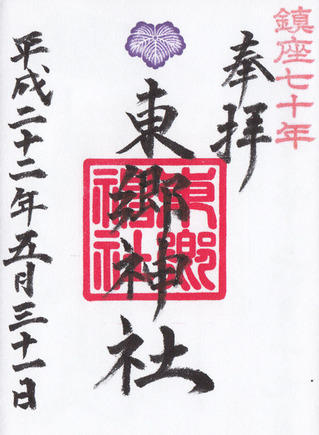 鎮座七十年
奉拝
東郷神社
東郷神社
平成二十二年五月三十一日